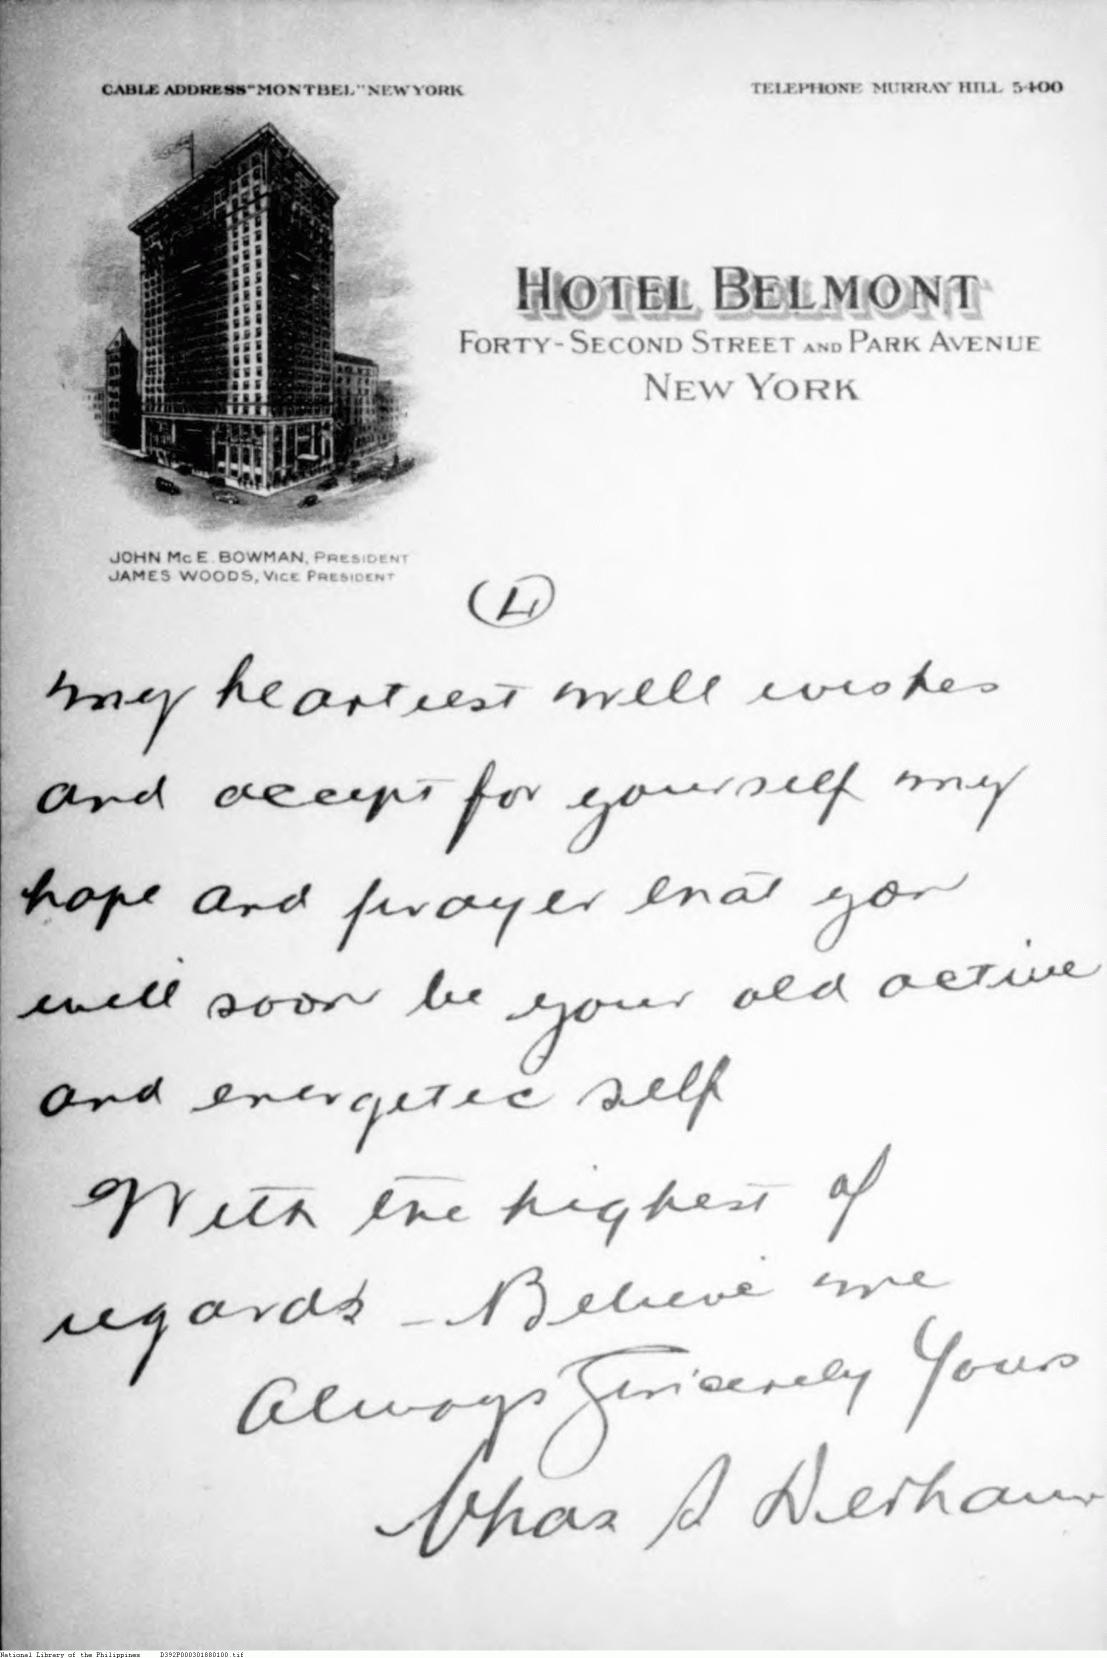 CABLE ADDRESS "MONTBEL" NEW YORK
TELEPHONE MURRAY HILL 5400
HOTEL BELMONT
FORTY-SECOND STREET AND PARK AVENUE
NEW YORK
JOHN McE. BOWMAN, PRESIDENT
JAMES WOODS, VICE PRESIDENT
(4)
my heartiest well wishes
and accept for yourself my
hope and prayer that you
will soon be your old active
and energetic self
With the highest of
regards – Believe me
Always Sincerely Yours
Chas S
National Library of the Philippines D392P000301880100.tif